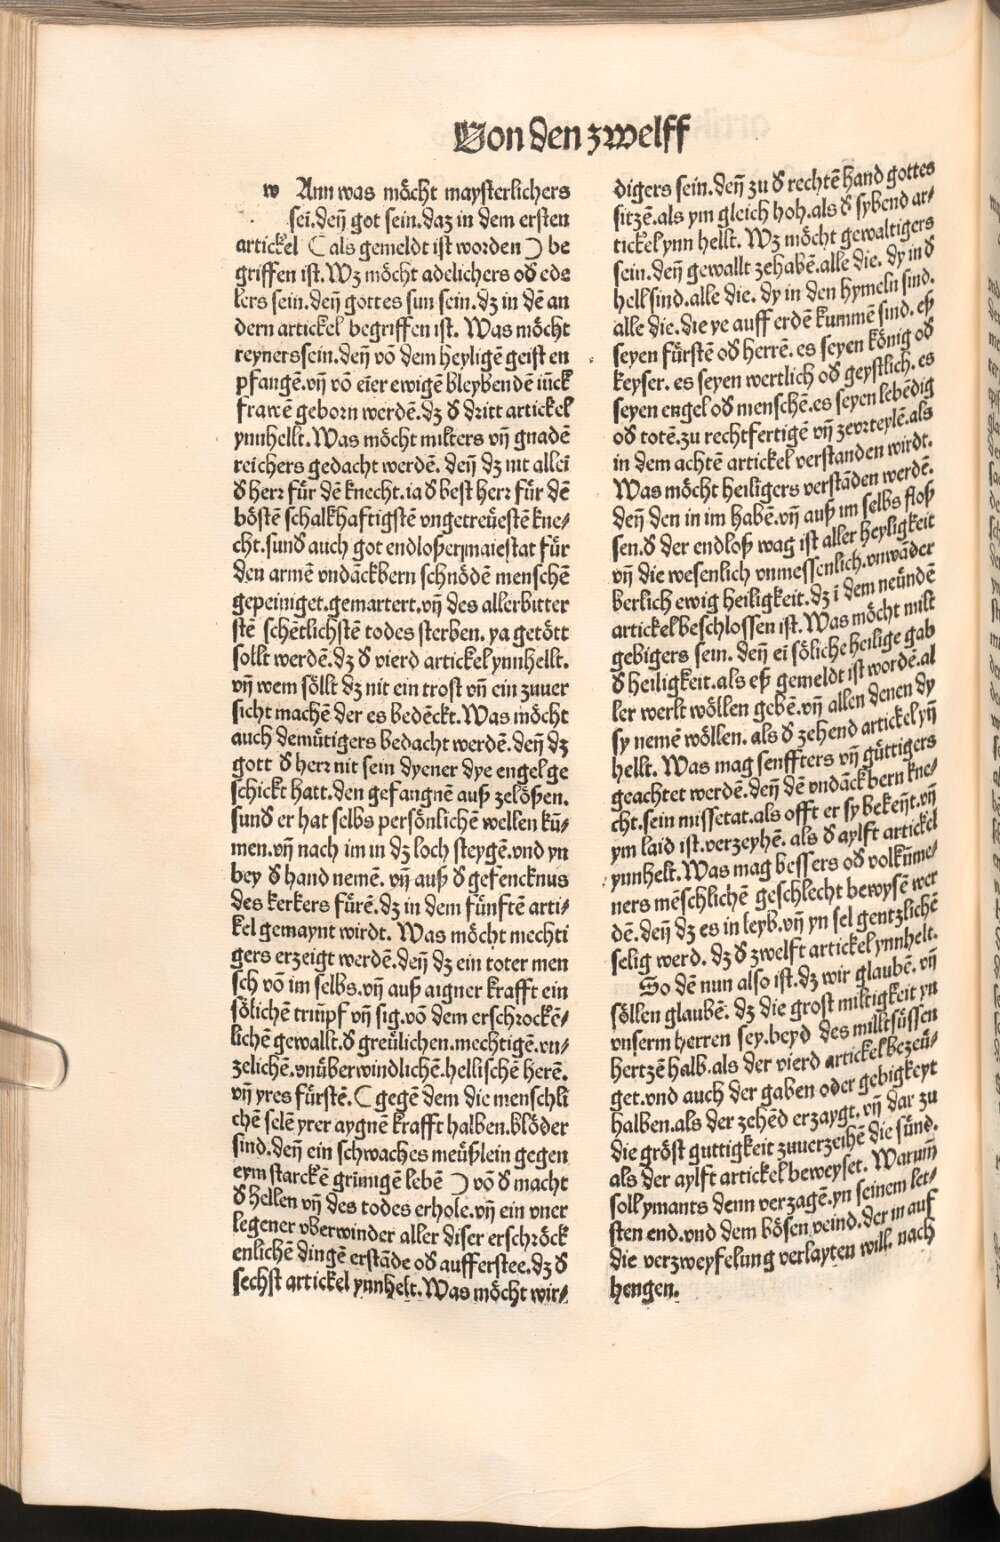 Von den zwelff
w Ann was möcht maysterlichers
sei.deñ got sein.daz in dem ersten
artickel (als gemeldt ist worden) be
griffen ist.Wz möcht adelichers oď ede
lers sein.deñ gottes sun sein.dz in dē an
dern artickel begriffen ist. Was möcht
reyners sein.deñ vō dem heyligē geist en
pfangē.vñ vō eīer ewigē bleybendē iūck
frawē geborn werdē.dz ď dritt artickel
ynnhellt.Was möcht milters vñ gnadē
reichers gedacht werdē. deñ dz nit alleī
ď herr für dē knecht.ia ď best herr für dē
böstē schalkhaftigstē vngetreüestē kne⸗
cht.sunď auch got endloßer maiestat für
den armē vndāckbern schnödē menschē
gepeiniget.gemartert.vñ des allerbitter
stē schētlichstē todes sterben. ya getött
sollt werdē.dz ď vierd artickel ynnhellt.
vñ wem söllt dz nit ein trost vñ ein zuuer
sicht machē der es bedēckt.Was möcht
auch demütigers bedacht werdē.deñ dz
gott ď herr nit sein dyener dye engel ge
schickt hatt.den gefangnē auß zelößen.
sunď er hat selbs persönlichē wellen kū⸗
men.vñ nach im in dz loch steygē.vnd yn
bey ď hand nemē. vñ auß ď gefencknus
des kerkers fürē.dz in dem fünftē arti⸗
kel gemaynt wirdt. Was möcht mechti
gers erzeigt werdē.deñ dz ein toter men
sch vō im selbs.vñ auß aigner krafft ein
sölichē triūpf vñ sig.vō dem erschrockē⸗
lichē gewallt.ď greülichen.mechtigē.vn⸗
zelichē.vnüberwindlichē.hellischē herē.
vñ yres fürstē.(gegē dem die menschli
chē selē yrer aygnē krafft halben.blöder
sind.deñ ein schwaches meüßlein gegen
eym starckē grimigē lebē ) vō ď macht
ď hellen vñ des todes erhole.vñ ein vner
legener vberwinder aller diser erschröck
enlichē dingē erstāde oď aufferstee.dz ď
sechst artickel ynnhelt.Was möcht wir⸗
digers sein.deñ zu ď rechtē hand gottes
sitzē.als ym gleich hoh.als ď sybend ar⸗
tickel ynn hellt. Wz möcht gewaltigers
sein.deñ gewallt zehabē.alle die. dy in ď
hell sind.alle die. dy in den hymeln sind.
alle die.die ye auff erdē kummē sind. eß
seyen fürstē oď herrē. es seyen könig oď
keyser. es seyen wertlich oď geystlich. es
seyen engel oď menschē.es seyen lebēdig
oď totē.zu rechtfertigē vñ zevrteylē.als
in dem achtē artickel verstanden wirdt.
Was möcht heiligers verstāden werdē.
deñ den in im habē.vñ auß im selbs floß
sen.ď der endloß wag ist aller heyligkeit
vñ die wesenlich vnmessenlich.vnwāder
berlich ewig heiligkeit.dz ī dem neündē
artickel beschlossen ist.Was möcht milt
gebigers sein. deñ eī söliche heilige gab
ď heiligkeit.als eß gemeldt ist wordē.al
ler werlt wöllen gebē.vñ allen denen dy
sy nemē wöllen. als ď zehend artickel yñ
hellt. Was mag senffters vñ güttigers
geachtet werdē.deñ dē vndāckbern kne⸗
cht.sein missetat.als offt er sy bekeñt.vñ
ym laid ist.verzeyhē. als ď aylft artickel
ynnhelt.Was mag bessers oď volkūme⸗
ners mēschlichē geschlecht bewysē wer
dē.deñ dz es in leyb.vñ yn sel gentzlichē
selig werd. dz ď zwelft artickel ynnhelt.
So dē nun also ist.dz wir glaubē. vñ
söllen glaubē. dz die grost miltigkeit yn
vnserm herren sey.beyd des milltsüssen
hertzē halb.als der vierd artickel bezeü⸗
get.vnd auch der gaben oder gebigkeyt
halben.als der zehēd erzaygt.vñ dar zu
die gröst guttigkeit zuuerzeihē die sünd.
als der aylft artickel beweyset. Warum̄
soll ymants denn verzagē.yn seinem let⸗
sten end.vnd dem bösen veind.der in auf
die verzweyfelung verlayten will. nach
hengen.